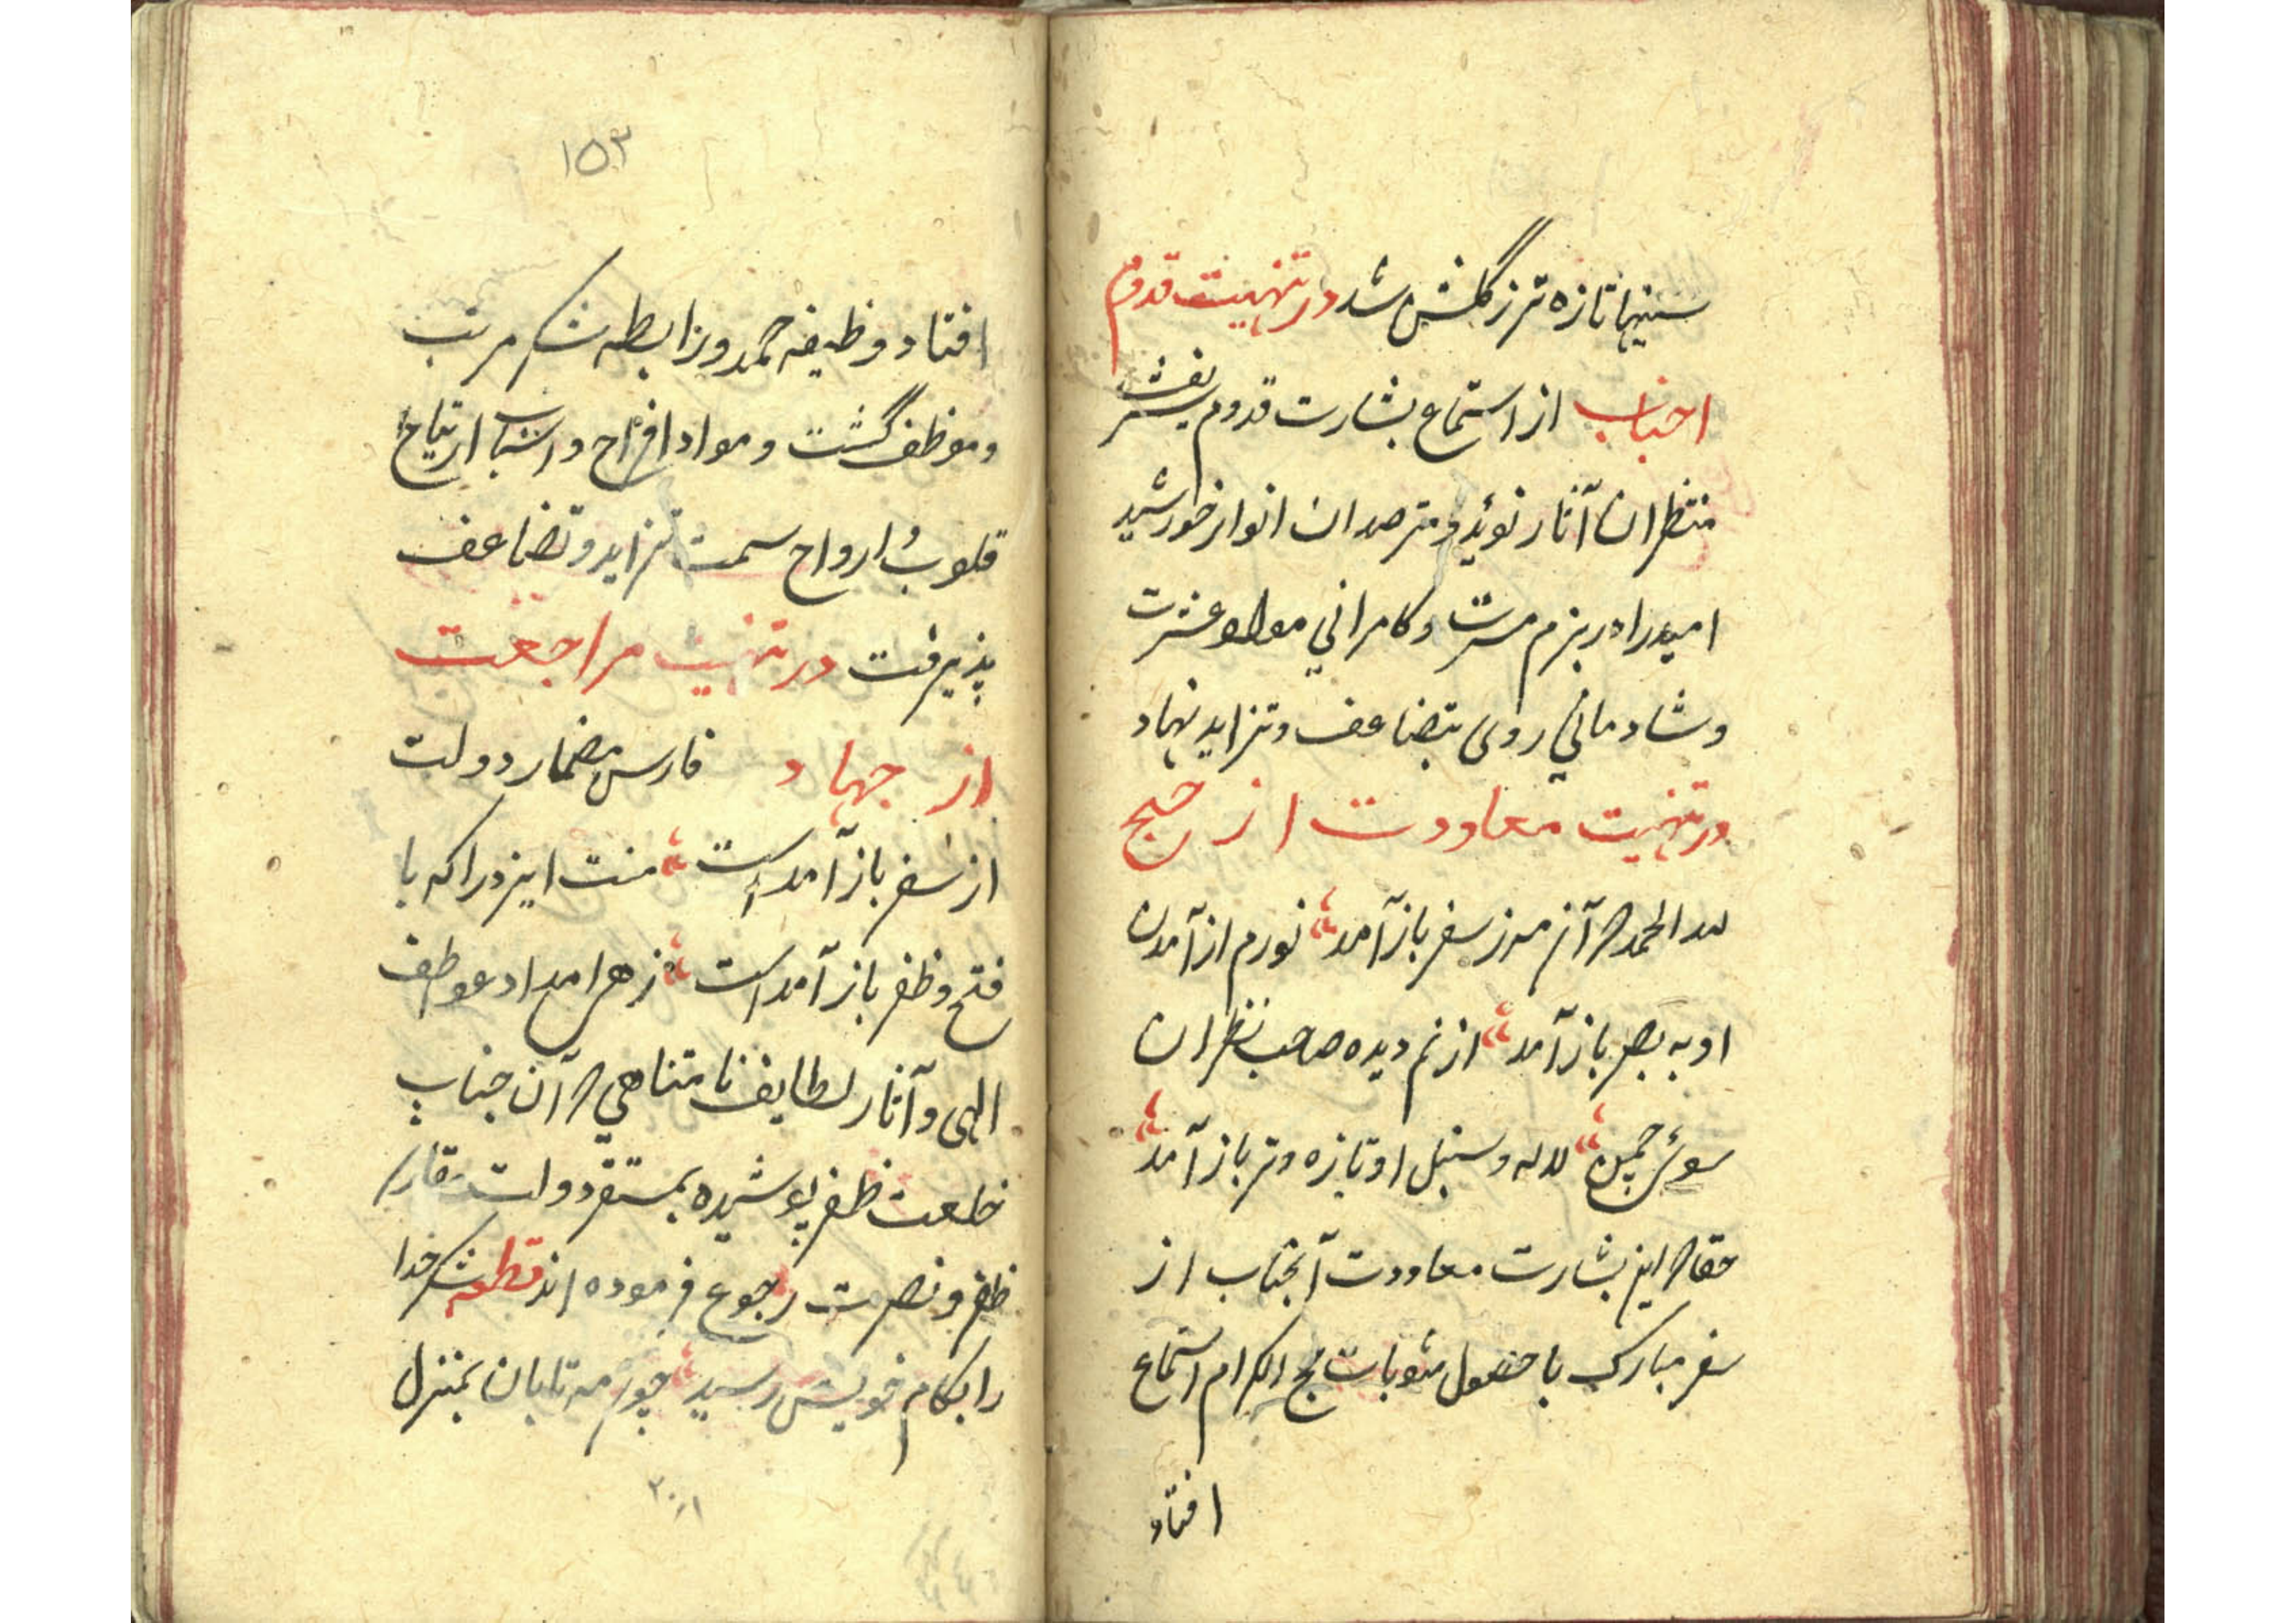 سینها تازه‌تر ز گلشن شد در تهنیت قدوم
احباب از استماع بشارت قدوم شریفش
منتظران آثار نوید و مترصدان انوار خورشید
امید را در بزم مسرت و کامرانی مواد عشرت
و شادمانی روی بتضاعف و تزاید نهاد
در تهنیت معاودت از حج
لله الحمد که آن مه ز سفر باز آمد نورم از آمدن
او به بصر باز آمد از نم دیده صاحب نظران
سوئ چمن لاله و سنبل او تازه و تر باز آمد
حقا که این بشارت معاودت آنجناب از
سفر مبارک با حصول مثوبات حج اکرام استماع
افتاد
۱۵۳
افتاد وظیفه حمد و رابطه شکر مرتب
و موظف گشت و مواد افراح و اسباب ارتیاح
قلوب و ارواح سمت تزاید و تضاعف
پذیرفت در تهنیت مراجعت
از جهاد فارس مضمار دولت
از سفر باز آمد است منت ایزد را که با
فتح و ظفر باز آمد است زهی امداد عواطف
الهی و آثار لطایف نامتناهی که آن جناب
خلعت ظفر پوشیده بمستقر دولت
ظفر و نصرت رجوع فرموده اند قطعه شکر خدا
را بکام خویش رسید چون مه تابان بمنزل